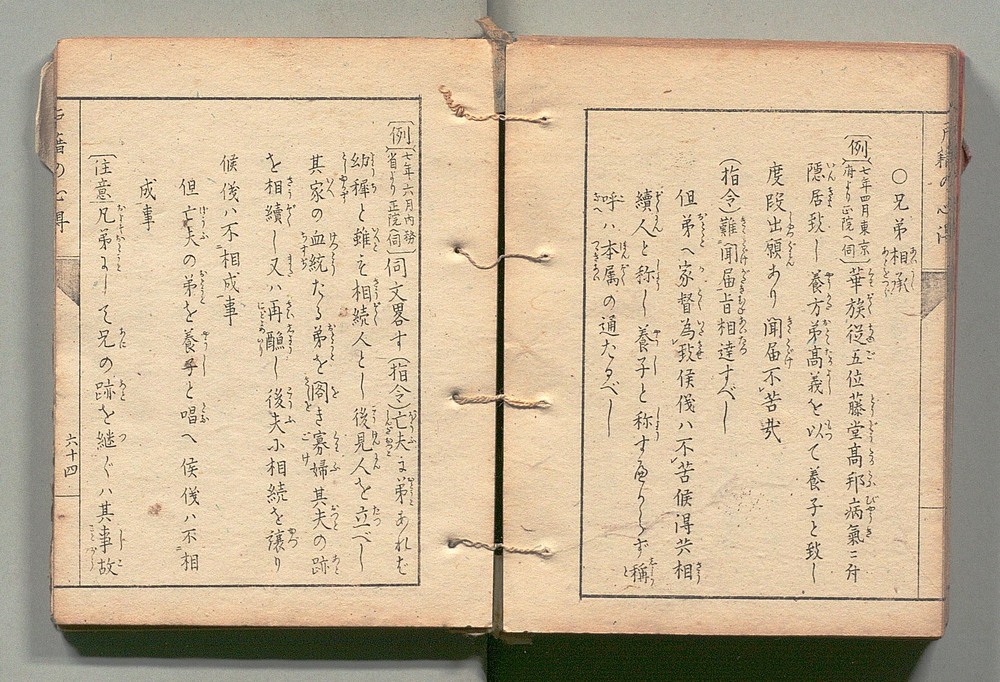 ○兄弟相承
〔例〕七年四月東京府より正院伺 華族従五位藤堂髙邦病氣ニ付
隠居致し養方弟髙義を以て養子と致し
度段出願あり聞届不苦哉
（指令）難聞届旨相達すべし
但弟へ家督為致候儀ハ不苦候得共相
續人と称し養子と称す
呼ハ本属の通たるべし
戸籍の心得
〔例〕七年六月内務省より正院伺 伺文畧す（指令）亡夫に弟あれむ
幼穉と雖も相続人とし後見人を立べし
其家の血統たる弟を閣き寡婦其夫の跡
を相續し又ハ再醮し後夫小相続を譲り
候儀ハ不相成事
但亡夫の弟を養子と唱へ候儀ハ不相
成事
〔注意〕兄弟にして兄の跡を継ぐハ其事故
戸籍の心得
六十四